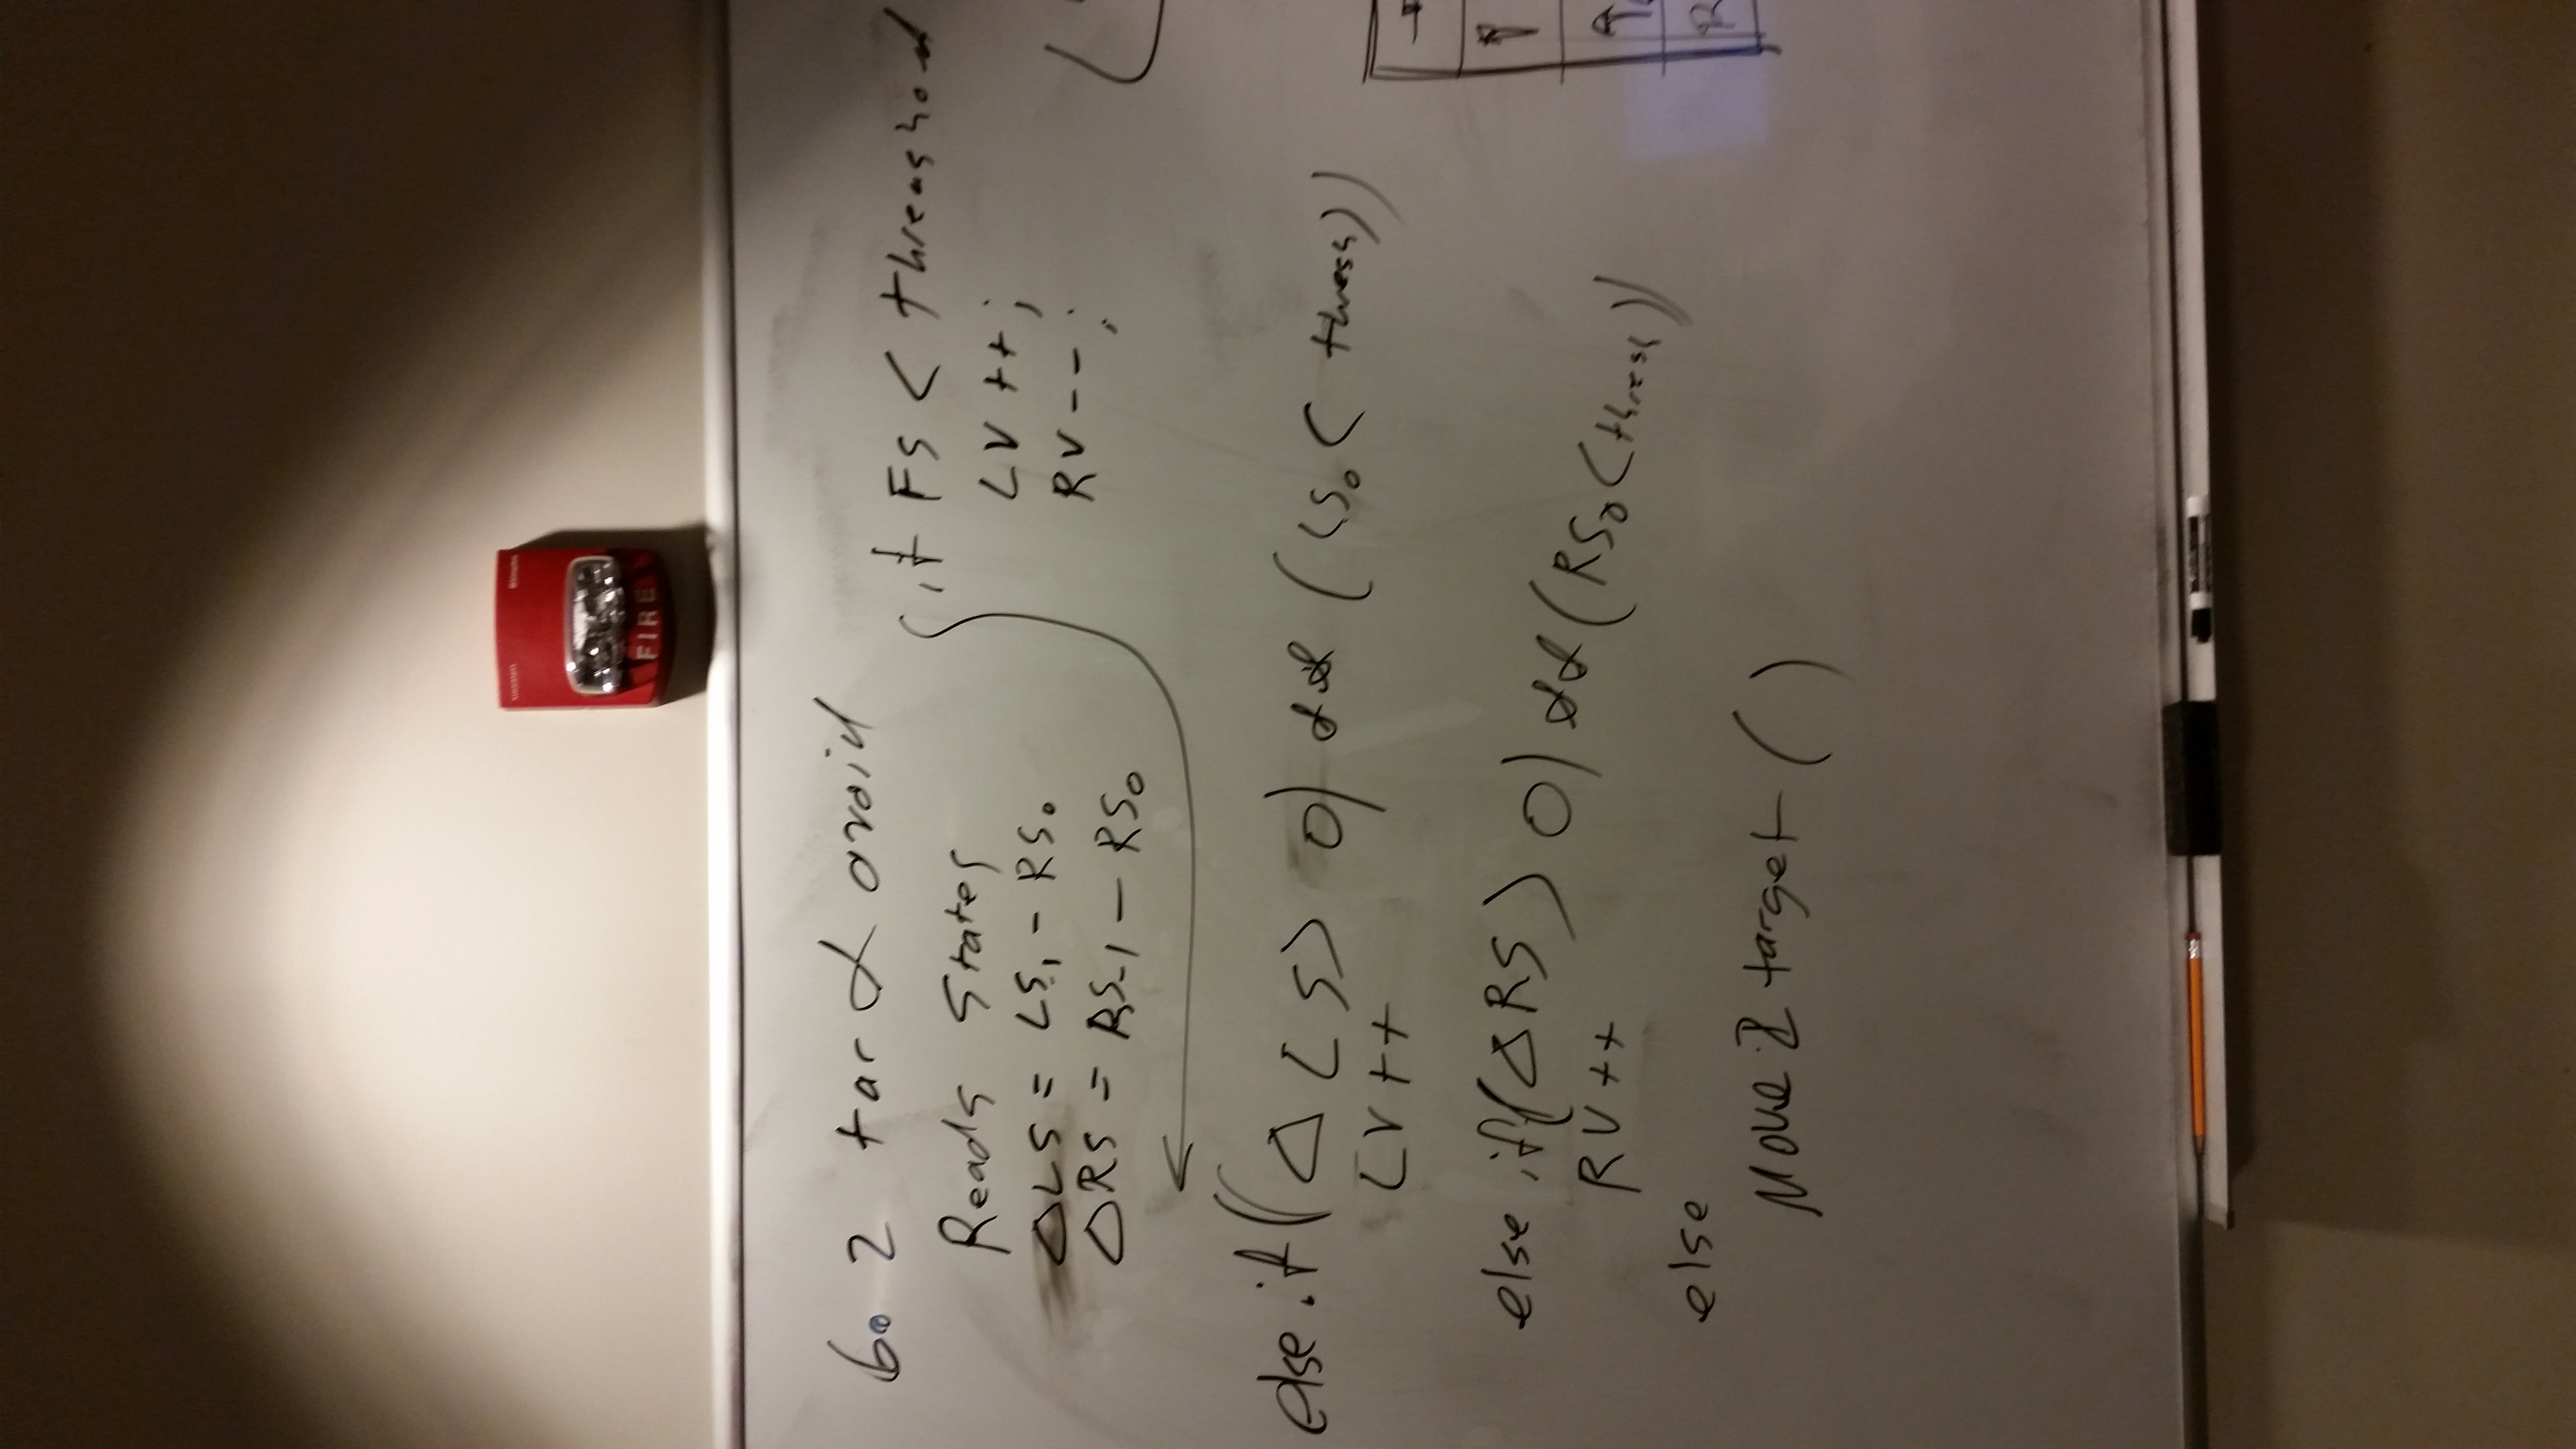 FIRE
Go 2 tar & avoid
Reads States
ΔLS = LS1 - RS0
ΔRS = RS-1 - RS0
if FS < threashold
LV ++;
RV --;
else if((ΔLS > 0) && (LS0 < thresh))
LV ++
else if((ΔRS > 0) && (RS0 < thresh))
RV ++
else
Move 2 target ( )